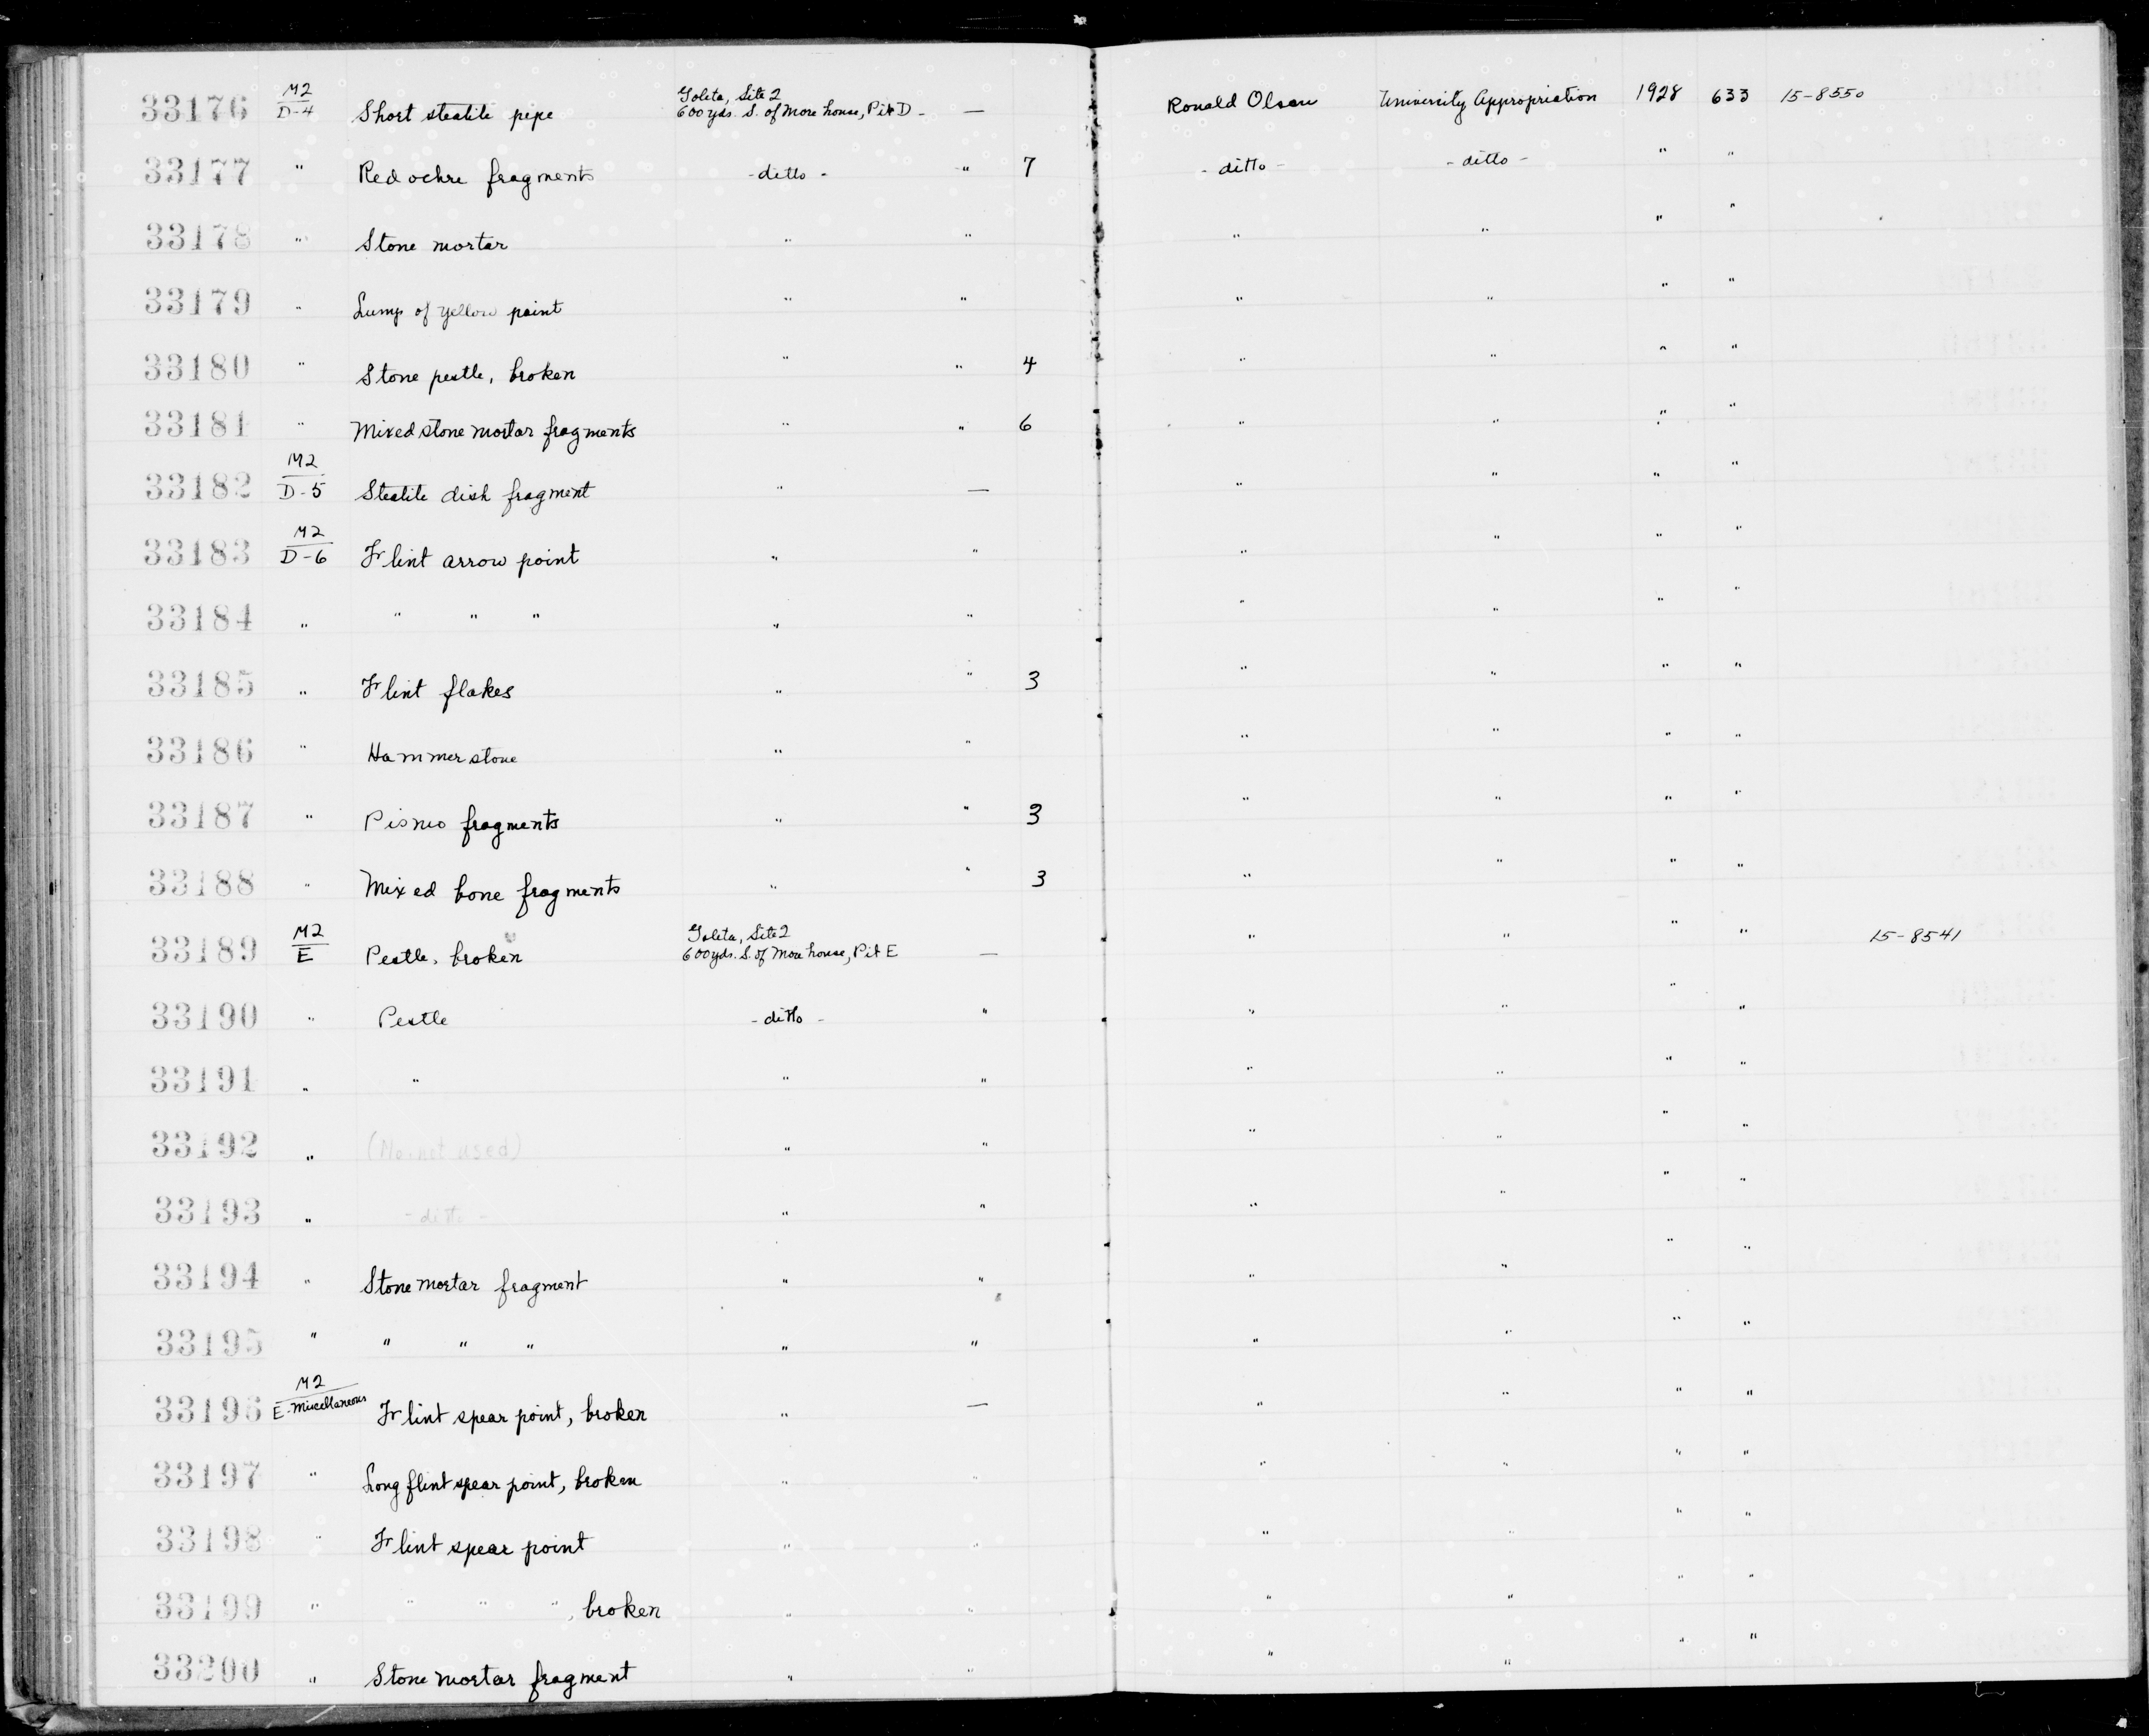 33176 M2/D-4 Short steatite pipe Goleta, Site 2 600 yds. S. of More house, Pit D - — Ronald Olson University Appropriation 1928 633 15-8550
33177 " Red ochre fragments - ditto - " 7 - ditto - - ditto - " "
33178 " Stone mortar " " " " " "
33179 " Lump of yellow paint " " " " " "
33180 " Stone pestle, broken " " 4 " " " "
33181 " Mixed stone mortar fragments " " 6 " " " "
33182 M2/D-5 Steatite dish fragment " — " " " "
33183 M2/D-6 Flint arrow point " " " " " "
33184 " " " " " " " " " "
33185 " Flint flakes " " 3 " " " "
33186 " Hammerstone " " " " " "
33187 " Pismo fragments " " 3 " " " "
33188 " Mixed bone fragments " " 3 " " " "
33189 M2/E Pestle, broken Goleta, Site 2 600 yds. S. of More house, Pit E — " " " " 15-8541
33190 " Pestle - ditto - " " " " "
33191 " " " " " " " "
33192 " (No. not used) " " " " " "
33193 " - ditto - " " " " " "
33194 " Stone mortar fragment " " " " " "
33195 " " " " " " " " " "
33196 M2/E-Miscellaneous Flint spear point, broken " — " " " "
33197 " Long flint spear point, broken " " " " " "
33198 " Flint spear point " " " " " "
33199 " " " " , broken " " " " " "
33200 " Stone mortar fragment " " " " " "